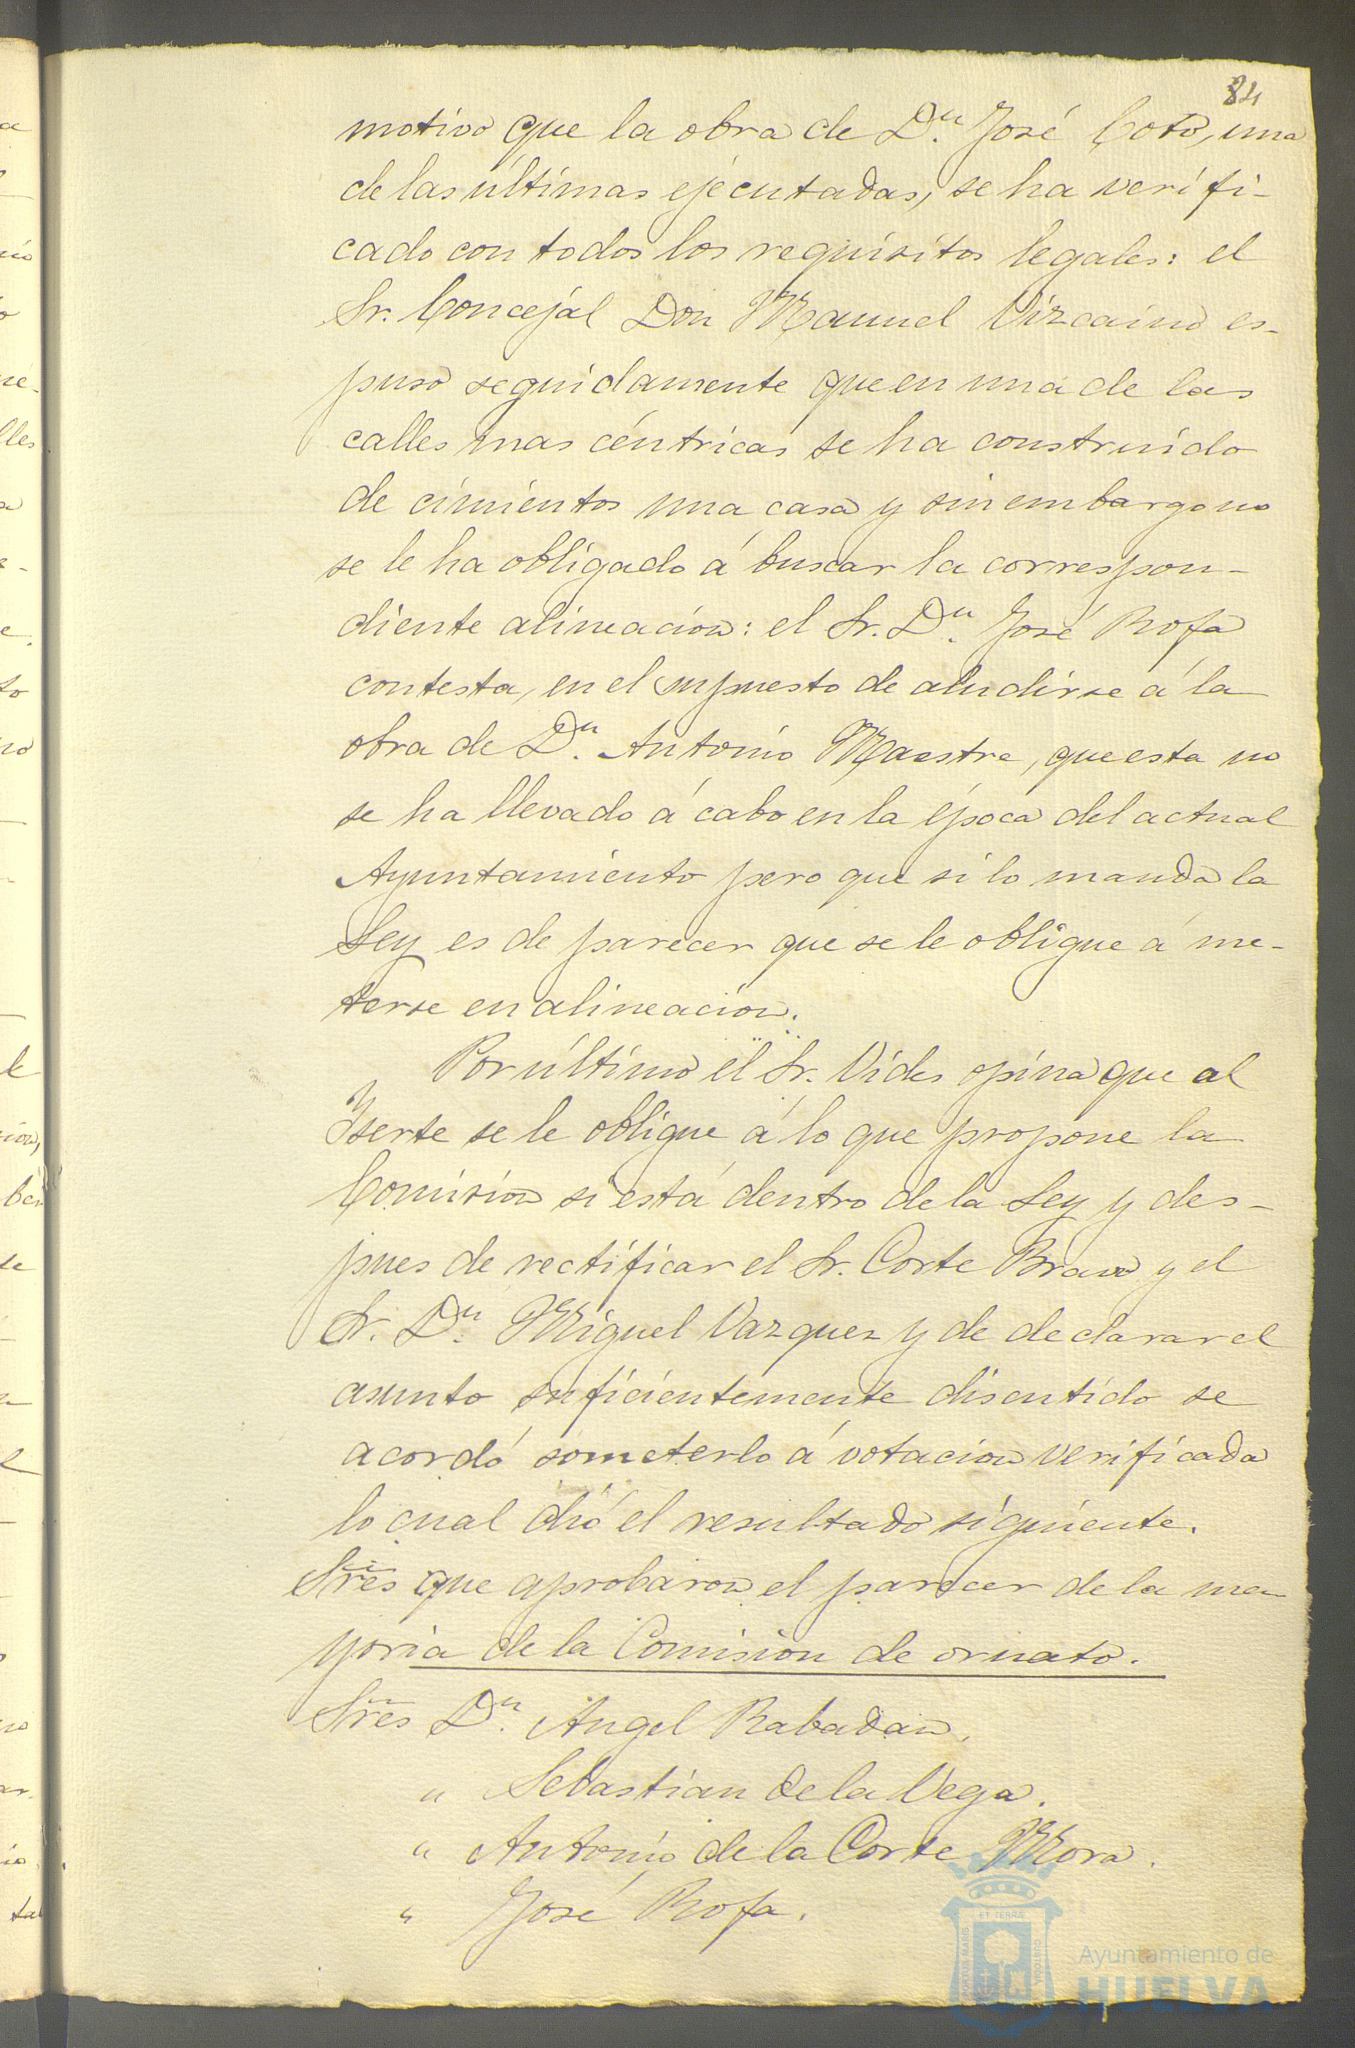 84
motivo que la obra de Dⁿ. José Coto, una
de las últimas ejecutadas, se ha verifi-
cado con todos los requisitos legales: el
Sr. Concejal Don Manuel Vizcaino es-
puso seguidamente que en una de las
calles mas céntricas se ha construido
de cimientos una casa y sin embargo no
se le ha obligado á buscar la correspon-
diente alineacion: el Sr. Dⁿ. José Rofa
contesta, en el supuesto de aludirse á la
obra de Dⁿ. Antonio Maestre, que esta no
se ha llevado á cabo en la época del actual
Ayuntamiento pero que si lo manda la
Ley es de parecer que se le obligue á me-
terse en alineacion.
Por último el Sr. Vides opina que al
Yserte se le obligue á lo que propone la
Comision si está dentro de la Ley y des-
pues de rectificar el Sr. Corte Bravo y el
Sr. Dⁿ. Miguel Vazquez y de declarar el
asunto suficientemente discutido se
acordó someterlo á votacion verificada
lo cual dió el resultado siguiente.
Sres que aprobaron el parecer de la ma
yoria de la Comision de ornato.
Sres Dⁿ. Angel Rabadan.
" Sebastian de la Vega.
" Antonio de la Corte Mora.
" José Rofa.
Ayuntamiento de
HUELVA